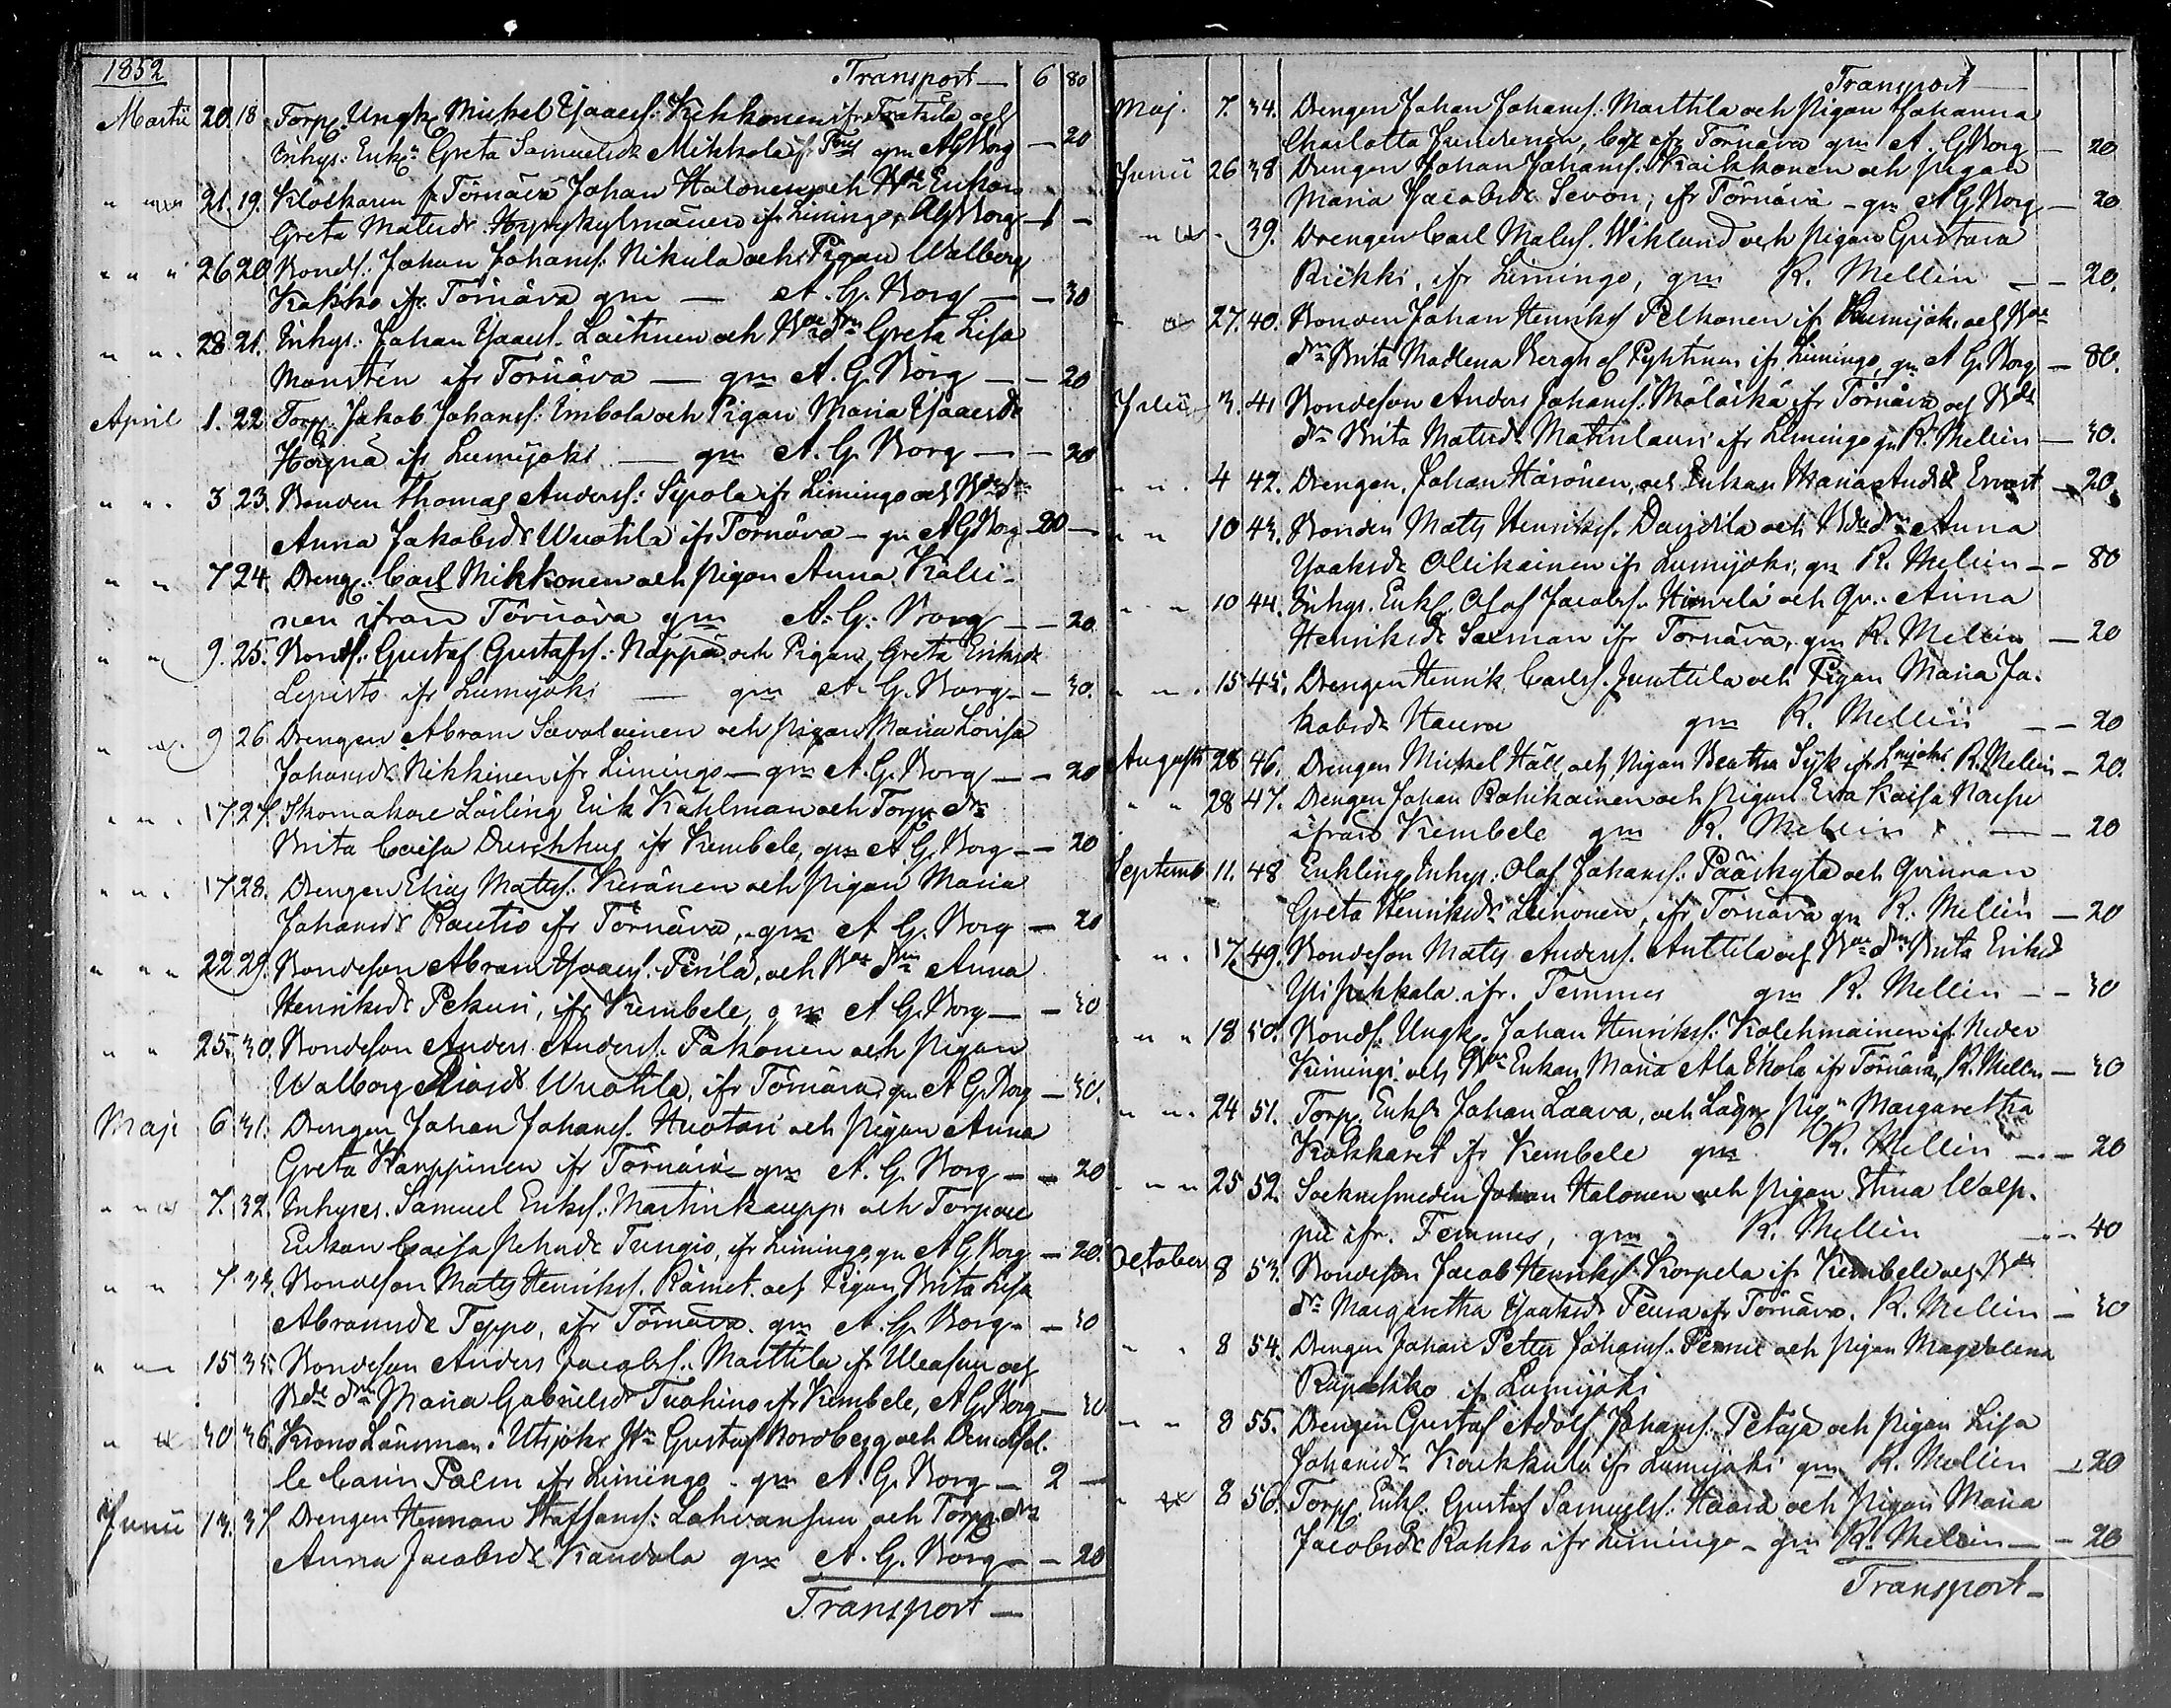 1852
Transport — 6 80
Martii 20. 18 Torp. Ungk. Michel Isaacs: Kekkonen ifr och
Inhys: Enk. Greta Samuelsdr Mikkola gm AGBorg — 20
" " 21. 19. Klockaren fr Törnävä Johan Halonen och Enkan
Greta Matsdr ifr Limingo, AGBorg — 1 —
" " " 26. 20. Bonds: Johan Johanss: Nikula och Pigan Walborg
Kakko ifr Törnäva gm — A. G. Borg — — 30
" " . 28. 21. Inhys: Johan Isaacs. Laitinen och dr Greta Lisa
Monstén ifr Törnäva — gm A. G. Borg — — 20
April 1. 22. Torp. Jakob Johanss: Embola och Pigan Maria Isaacsdr
ifr Lumijoki — gm A. G. Borg — — 20
" " . 3 23. Bonden Thomas Anderss: Sipola ifr Limingo och Bde dr
Anna Jakobsdr Wuotila ifr Törnäva — gm AGBorg — 80 —
" " 7 24. Dreng: Carl Mikkonen och pigan Anna Kälei-
nen ifrån Törnäva gm A. G. Borg — — 20
" " 9. 25. Bonds: Gustaf Gustafss: Näppä och Pigan Greta Eriksdr
Lepistö ifr Lumijoki — gm A. G. Borg — — 30.
" " 9 26. Drengen Abram Savolainen och pigan Maria Lovisa
Johansdr Nikkinen ifr Limingo — gm A. G. Borg — — 20
" " . 17 27. Skomakare Lärling Erik Kahlman och Torp. dr
Brita Caisa ifr Kembele, gm A. G. Borg — — 20
" " . 17 28. Drengen Elias Matss. Keränen och pigan Maria
Johansdr Rautio ifr Törnäva, gm A G. Borg — 20
" " " 22 29. Bondeson Abram Isaacs. Perilä, och Bde dr Anna
Henriksdr Pekuri, ifr Kembele, gm A G. Borg — — 30
" " 25. 30. Bondeson Anders Anderss. Pakonen och pigan
Walborg Wuotila, ifr Törnäva, gm A G Borg — 30.
Maji 6 31. Drengen Johan Johanss. Huotari och pigan Anna
Greta Karppinen ifr Törnävä gm A. G. Borg — — 20
" " 7. 32. Inhyses. Samuel Erikss. Martinkauppi och Torpare
Enkan Caisa Tungio, ifr Limingo, gm A G Borg — 20.
" " 7. 33. Bondeson Mats Henrikss. Rämet och Pigan Brita Lisa
Abramsdr Teppo, ifr Törnävä. gm A. G. Borg — — 30
" " 15 35. Bondeson Anders Jacobss. Marttila ifr Uleåsuu och
Bde dr Maria Gabrielsdr Tuohino ifr Kembele, A G Borg — 30
" " 30 36. Krono Länsman i Utsjoki Hr Gustaf Nordberg och Demoisel-
le Carin Palm ifr Limingo. gm A. G. Borg — 2 —
Junii 13. 37 Drengen Herman Staffanss: Lahvansuu och Torp. dr
Anna Jacobsdr Kandola gm A. G. Borg — — 20
Transport —
Transport —
Maj. 7. 34. Drengen Johan Johanss. Marttila och pigan Johanna
Charlotta ifr Törnäva gm A. G Borg — 20
Junii 26 38 Drengen Johan Johanss. Kaikkonen och pigan
Maria Jacobsdr Sevon, ifr Törnävä — gm A G Borg — 20
" " . 39. Drengen Carl Matss. Wiklund och pigan Gustava
Riekki, ifr Limingo, gm R. Mellin — — 20.
" " 27. 40. Bonden Johan Henrikss Pelkonen ifr Lumijoki och Bde
dr Brita Madlena Bergh ifr Limingo, gm A G. Borg — 80.
Julii 3. 41 Bondeson Anders Johanss: Mäläskä ifr Törnävä och Bde
dr Brita Matsdr Matinlauri ifr Limingo gm R. Mellin — 30.
" " . 4 42. Drengen Johan Härönen, och Enkan Maria Andsdr Ernest — 20.
" " 10 43. Bonden Mats Henrikss. Davidila och Bde dr Anna
Isaksdr Ollikainen ifr Lumijoki, gm R. Mellin — — 80
" " 10 44. Inhys. Enkl. Olof Jacobss. och Qv. Anna
Henriksdr Saxman ifr Törnävä, gm R. Mellin — 20
" " . 15 45. Drengen Henrik Carlss. Junttila och Pigan Maria Ja-
kobsdr Haura gm R. Mellin — — 20
Augusti 28 46. Drengen Michel Häll, och Pigan Beatha Sÿk ifr Lmijoki R. Mellin — 20.
" " 28 47. Drengen Johan Rahikainen och pigan Eva Kaisa
ifrån Kembele gm R. Mellin — — 20
Septemb 11. 48 Enkling Inhys: Olof Johanss. Pääskytä och Qvinnan
Greta Henriksdr Leinonen, ifr Törnävä gm R. Mellin — 20
" " . 17. 49. Bondeson Mats Anderss. Anttila och Bde dr Brita Eriksd
Ylipekkala ifr. Temmes gm R. Mellin — — 30
" " " 18 50. Bonds. Ungk. Johan Henrikss: Kolehmainen ifr Neder
Kiminge och Bde Enkan Maria Ala Ihola ifr Törnävä, R. Mellin — 30
" " . 24 51. Torp. Enkl. Johan Laava, och pig. Margaretha
Kokkaret ifr Kembele gm R. Mellin — — 20
" " " 25 52. Socknesmeden Johan Halonen och pigan Stina Walp-
pu ifr. Temmes, gm R. Mellin — — 40
October 8 53. Bondeson Jacob Henrikss. Korpela ifr Kembele och Bde
dr Margaretha Isaksdr Peura ifr Törnävä. R. Mellin — 30
" " 8 54. Drengen Johan Petter Johanss. och pigan Magdalena
ifr Lumijoki
" " 8 55. Drengen Gustaf Adolf Johanss. Petäjä och pigan Lisa
Johansdr Koukkula ifr Lumijoki gm R. Mellin — 20
" " 8 56. Torp. Enkl. Gustaf Samuelss. Haara och pigan Maria
Jacobsdr Rahko ifr Limingo — gm R. Mellin — — 20
Transport —